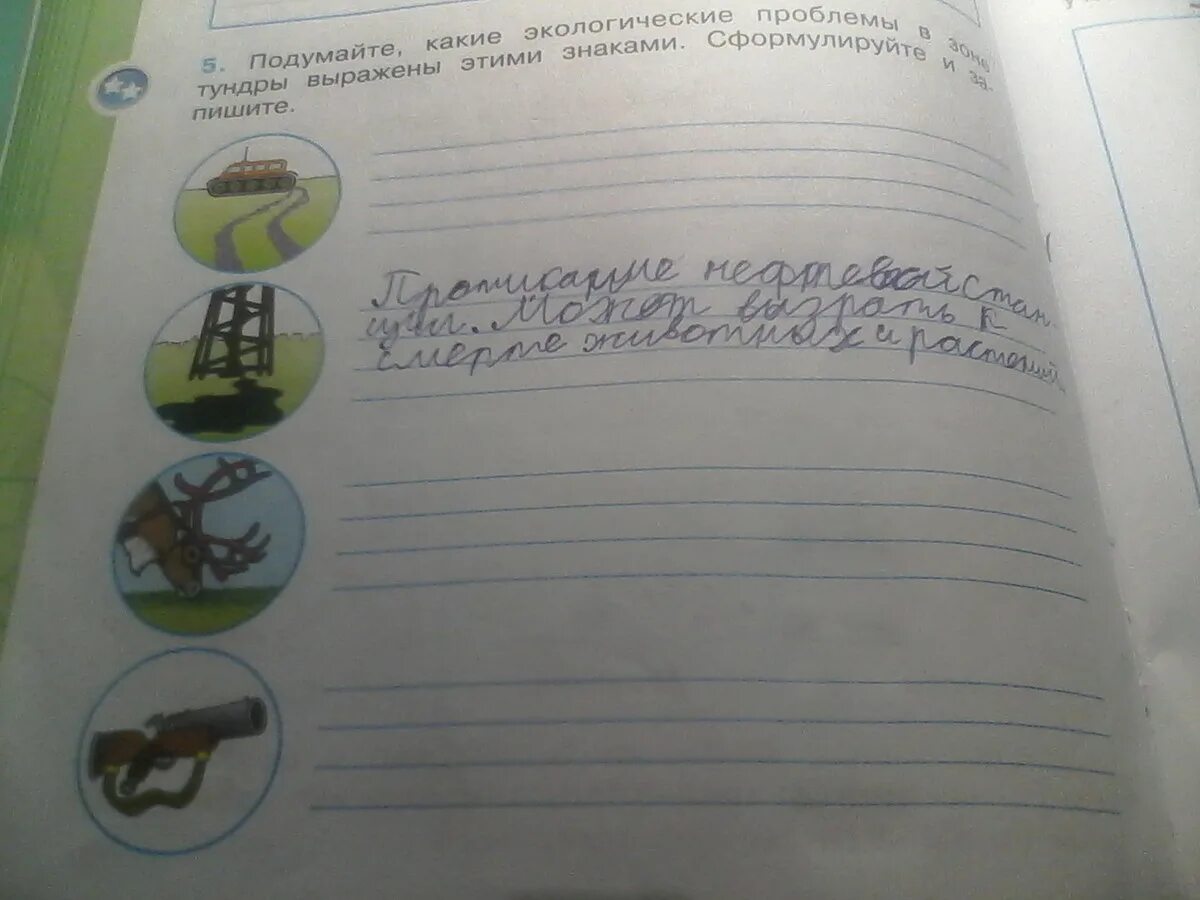 5. Подумайте, какие экологические проблемы в зоне
тундры выражены этими знаками. Сформулируйте и за-
пишите.
нефтевой стан-
ции. Может вызрать к
смерте животных и растений